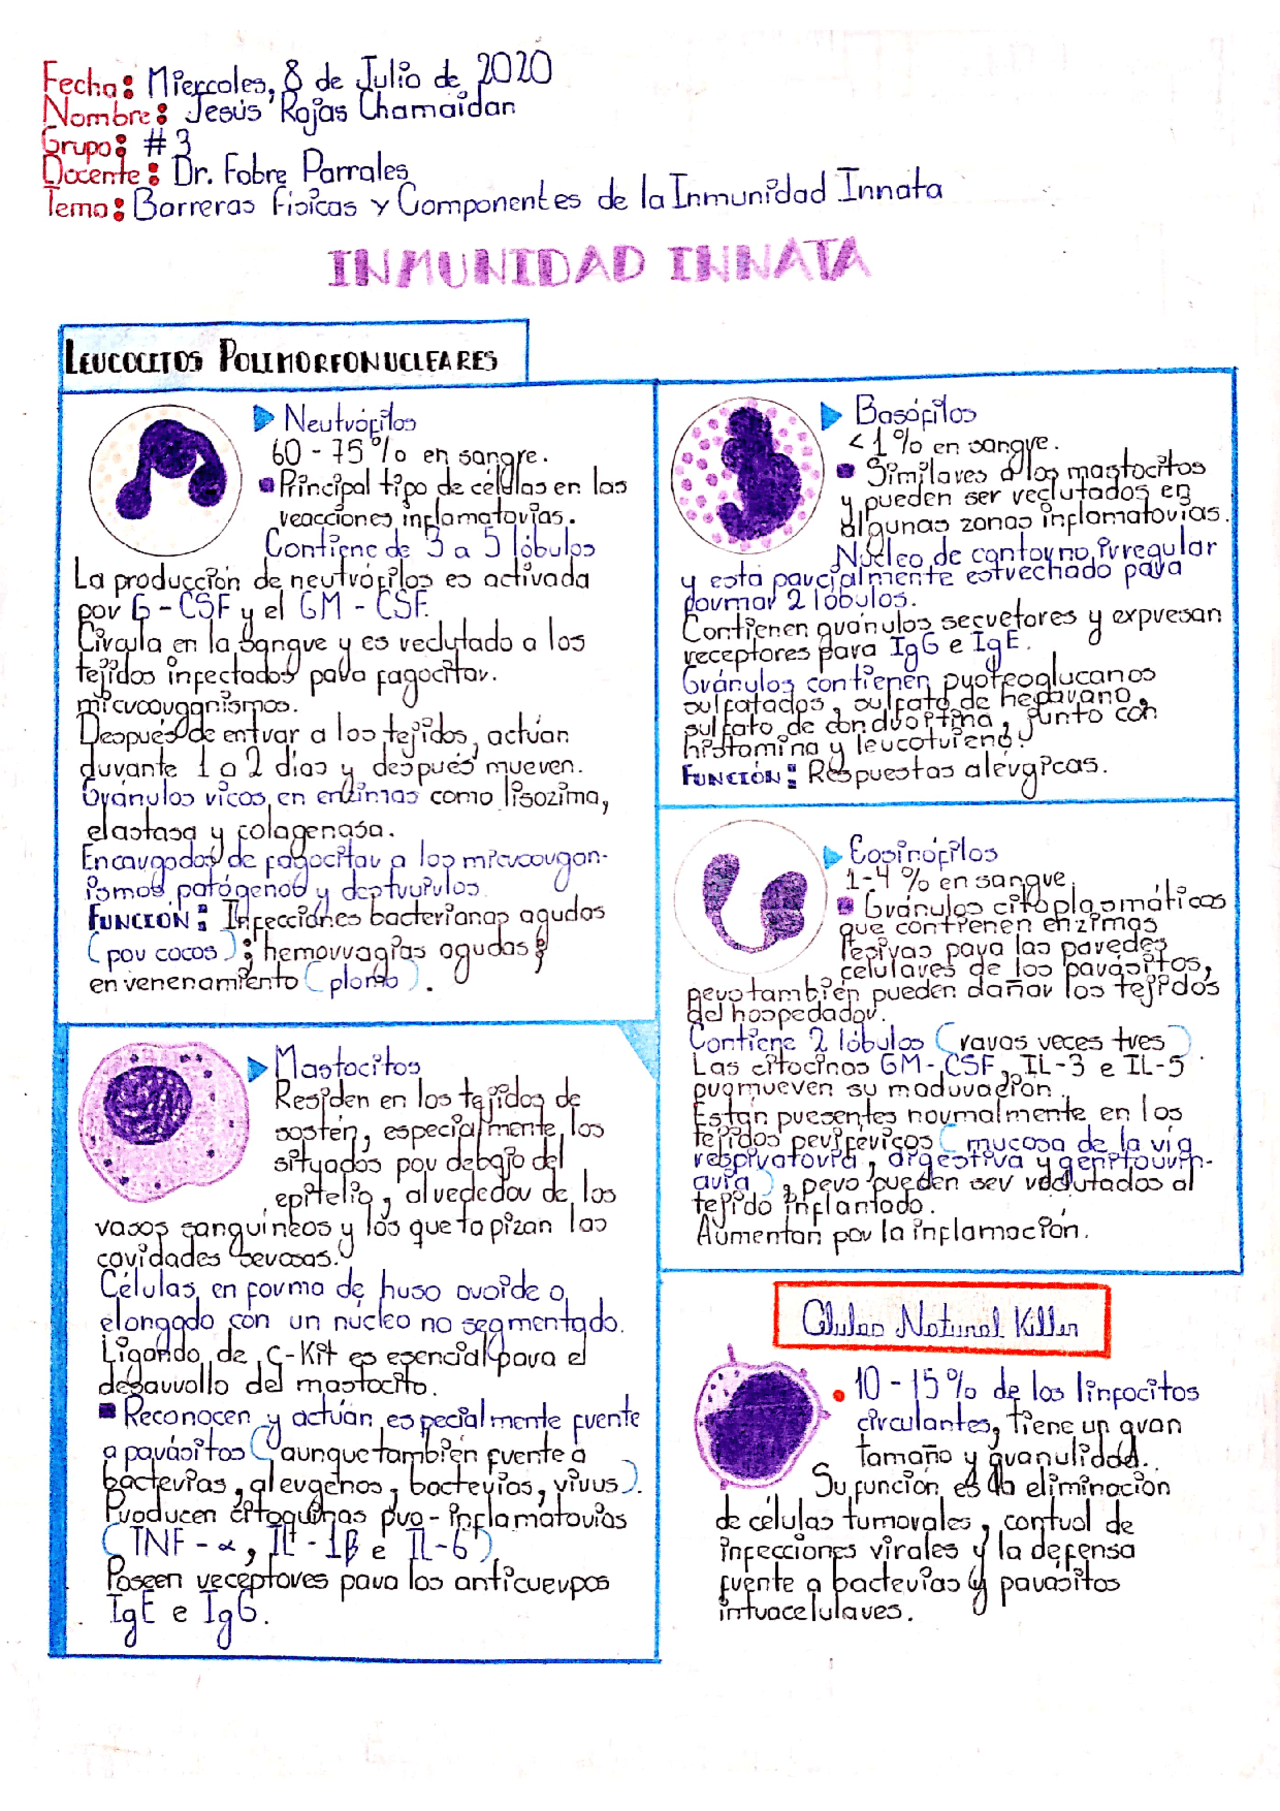 Fecha: Miercoles, 8 de Julio de 2020
Nombre: Jesús Rojas Chamaidan
Grupo: #3
Docente: Dr. Fabre Parrales
Tema: Barreras Físicas y Componentes de la Inmunidad Innata
INMUNIDAD INNATA
LEUCOCITOS POLIMORFONUCLEARES
Neutrófilos
60 - 75% en sangre.
Principal tipo de células en las
reacciones inflamatorias.
Contiene de 3 a 5 lóbulos
La producción de neutrófilos es activada
por G - CSF y el GM - CSF.
Circula en la sangre y es reclutado a los
tejidos infectados para fagocitar.
microorganismos.
Después de entrar a los tejidos, actúan
durante 1 a 2 dias y después mueren.
Gránulos ricos en enzimas como lisozima,
elastasa y colagenasa.
Encargados de fagocitar a los microorgan-
ismos patógenos y destruirlos
FUNCION: Infecciones bacterianas agudas
(por cocos); hemorragias agudas;
envenenamiento (plomo).
Mastocitos
Residen en los tejidos de
sostén, especialmente los
situados por debajo del
epitelio, alrededor de los
vasos sanguíneos y los que tapizan las
cavidades serosas.
Células en forma de huso ovoide o
elongado con un núcleo no segmentado.
Ligando de c-Kit es esencial para el
desarrollo del mastocito.
Reconocen y actúan especialmente frente
a parásitos (aunque también frente a
bacterias, alergenos, bacterias, virus).
Producen citoquinas pro-inflamatorias
(TNF - α, IL - 1β e IL-6)
Poseen receptores para los anticuerpos
IgE e IgG.
Basófilos
< 1% en sangre.
Similares a los mastocitos
y pueden ser reclutados en
algunas zonas inflamatorias.
Núcleo de contorno irregular
y esta parcialmente estrechado para
formar 2 lóbulos.
Contienen gránulos secretores y expresan
receptores para IgG e IgE.
Gránulos contienen proteoglucanos
sulfatados, sulfato de heparano,
sulfato de condroitina, junto con
histamina y leucotrieno.
FUNCIÓN: Respuestas alérgicas.
Eosinófilos
1-4% en sangre
Gránulos citoplasmáticos
que contienen enzimas
lesivas para las paredes
celulares de los parásitos,
pero también pueden dañar los tejidos
del hospedador.
Contiene 2 lóbulos (raras veces tres)
Las citocinas GM-CSF, IL-3 e IL-5
promueven su maduración.
Están presentes normalmente en los
tejidos periféricos (mucosa de la vía
respiratoria, digestiva y genitourin-
aria), pero pueden ser reclutados al
tejido inflamado.
Aumentan por la inflamación.
Células Natural Killer
10 - 15% de los linfocitos
circulantes, tiene un gran
tamaño y granulidad.
Su función es la eliminación
de células tumorales, control de
infecciones virales y la defensa
frente a bacterias y parásitos
intracelulares.